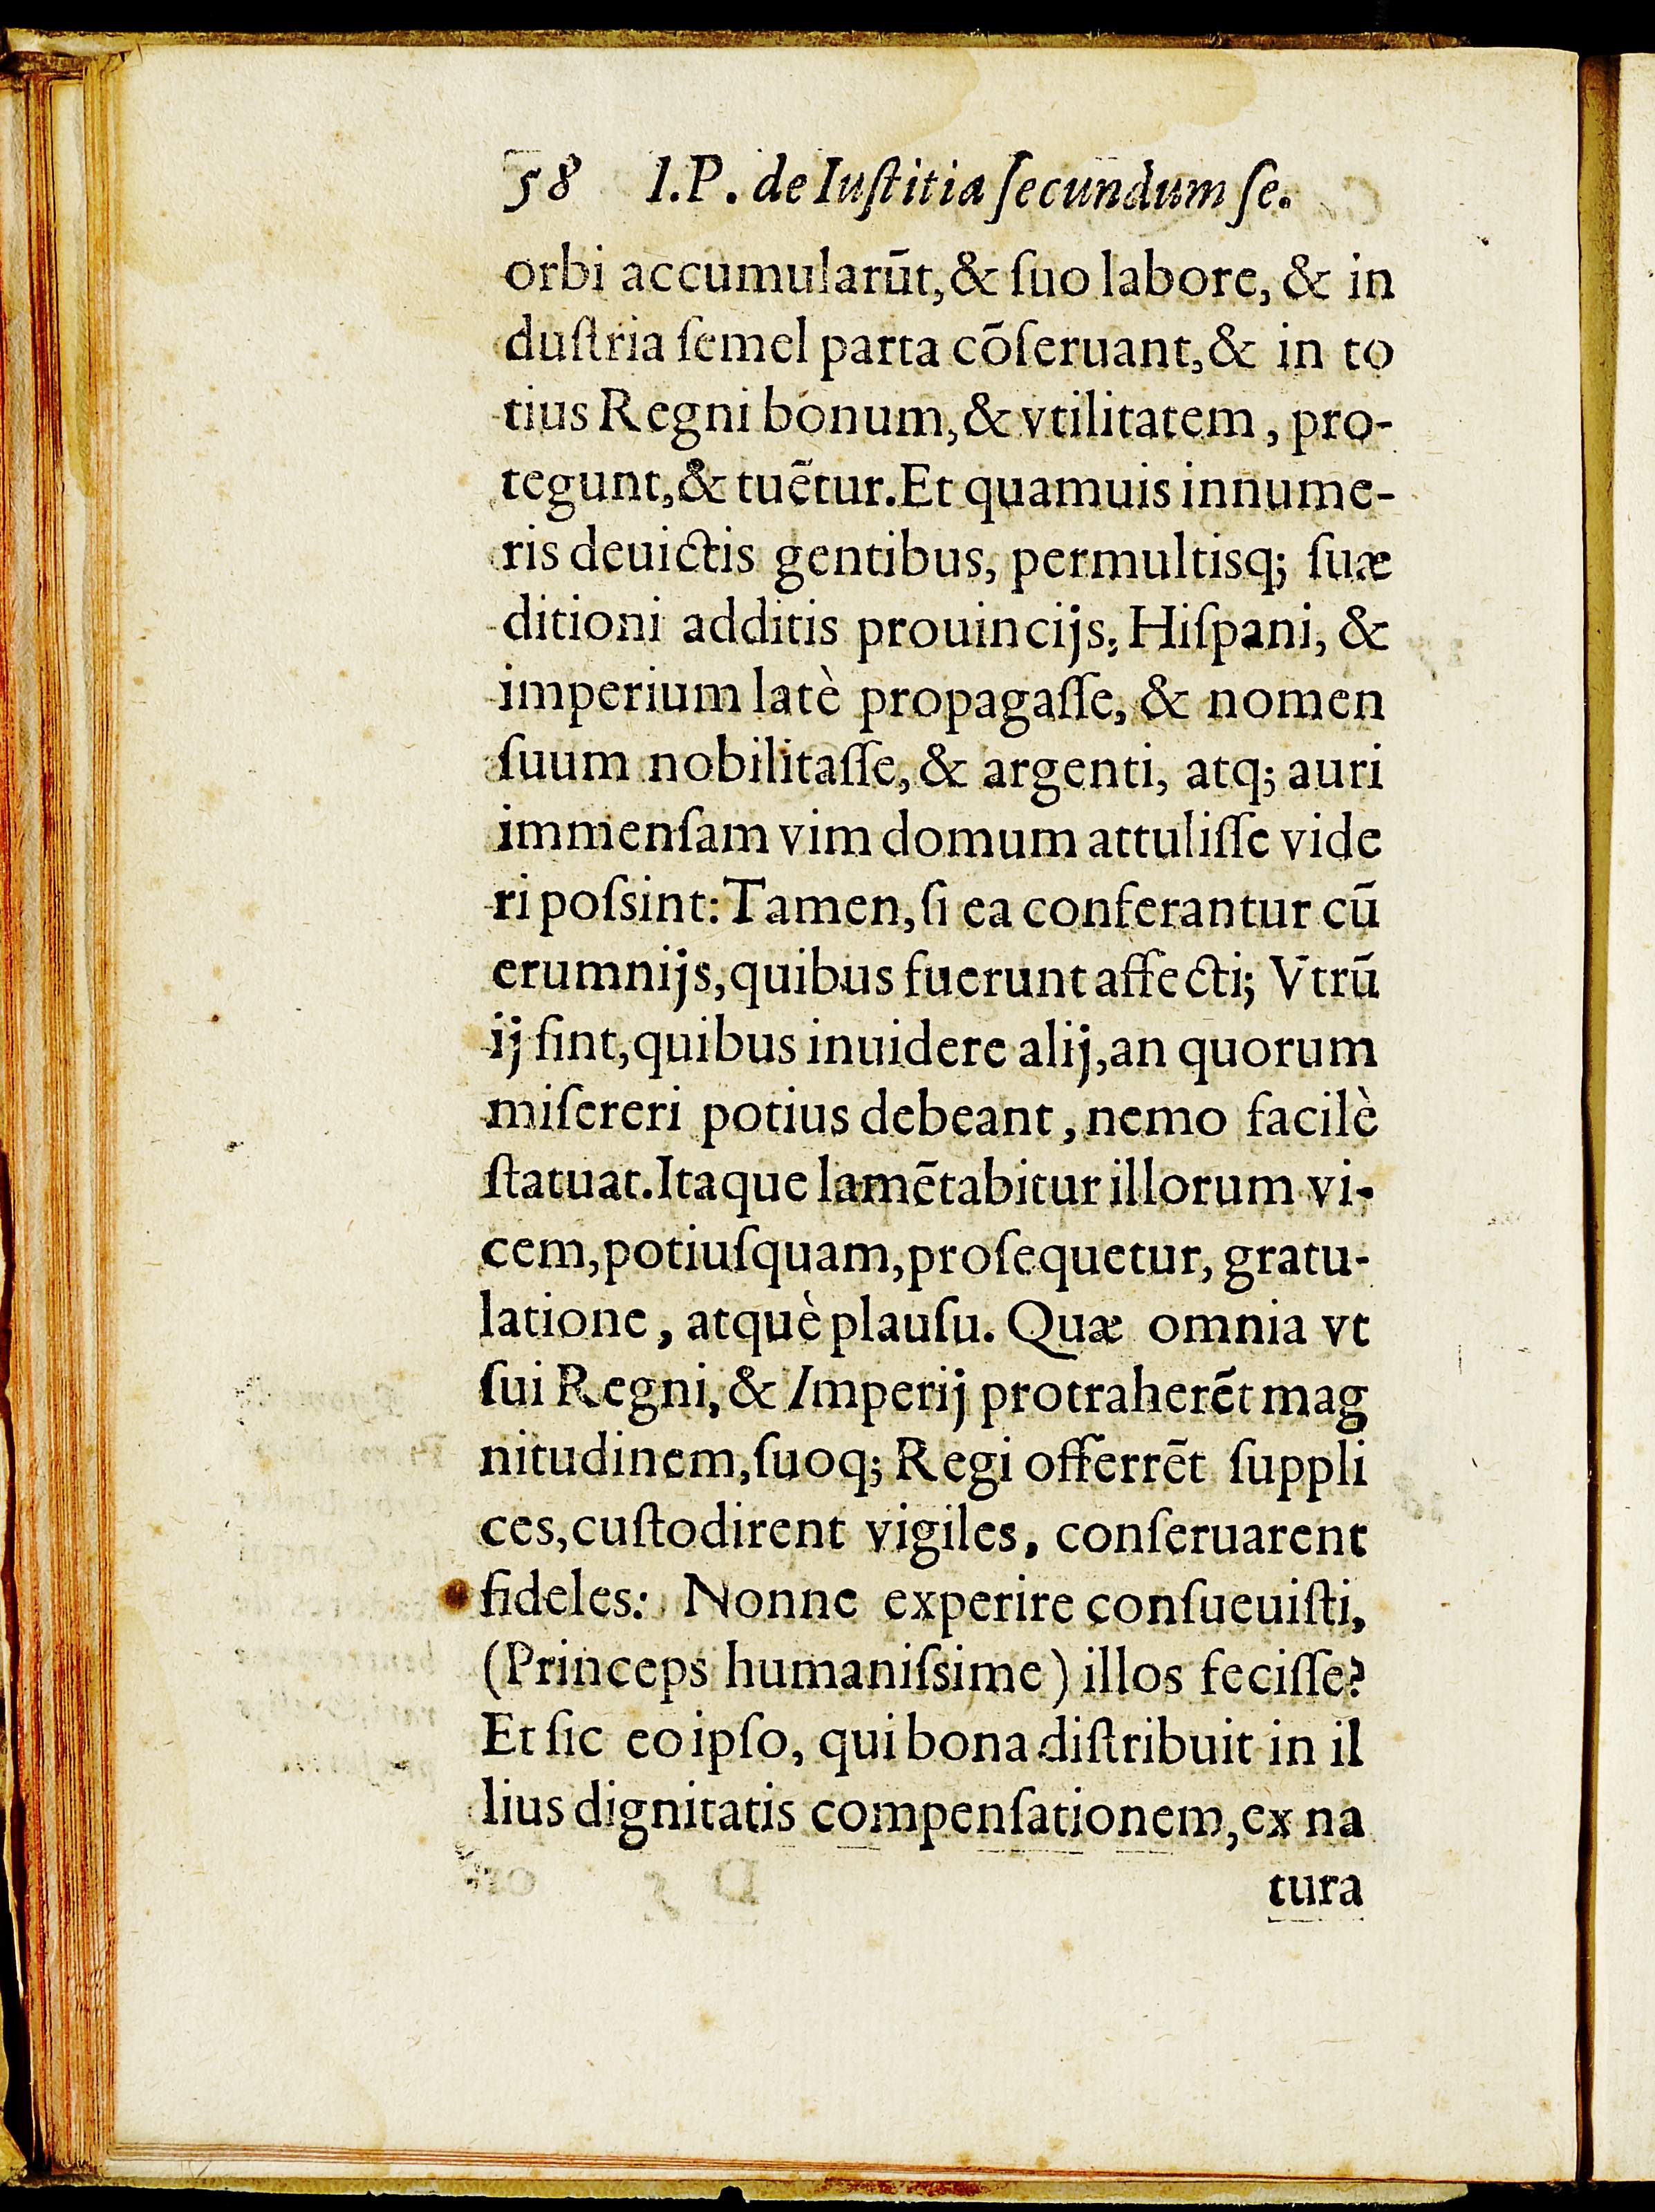 58 I.P. de Iuſtitia ſecundum ſe.
orbi accumularūt,& ſuo labore, & in
duſtria ſemel parta cōſeruant,& in to
tius Regni bonum,& vtilitatem, pro-
tegunt,& tuētur.Et quamuis innume-
ris deuictis gentibus, permultisq; ſuæ
ditioni additis prouincijs, Hiſpani, &
imperium latè propagaſſe, & nomen
ſuum nobilitaſſe,& argenti, atq; auri
immenſam vim domum attuliſſe vide
ri poſsint: Tamen,ſi ea conferantur cū
erumnijs,quibus fuerunt affecti; Vtrū
ij ſint,quibus inuidere alij,an quorum
miſereri potius debeant, nemo facilè
ſtatuat.Itaque lamētabitur illorum vi-
cem,potiuſquam,proſequetur, gratu-
latione, atquè plauſu. Quæ omnia vt
ſui Regni,& Imperij protraherēt mag
nitudinem,ſuoq; Regi offerrēt ſuppli
ces,cuſtodirent vigiles, conſeruarent
fideles: Nonne experire conſueuiſti,
(Princeps humaniſsime) illos feciſſe?
Et ſic eo ipſo, qui bona diſtribuit in il
lius dignitatis compenſationem,ex na
tura